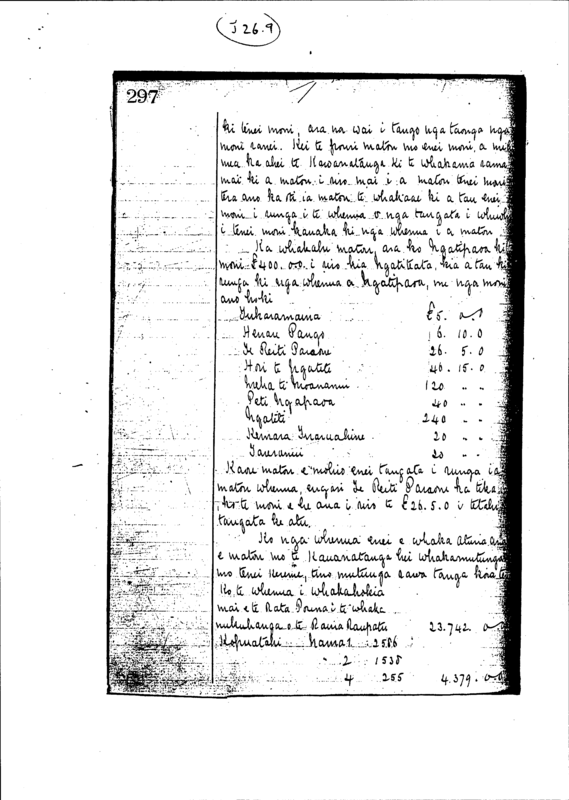 J 26.9
297
ki tenei moni, ara na wai i tango nga taonga nga
moni ranei. Kei te pouri matou mo enei moni, a me
mea ka ahei te Kawanatanga ki te whakama rama
mai ki a matou i riro mai i a matou tenei moni
tera ano ka ia matou te whakaae ki a tau enei
moni i runga i te whenua o nga tangata i
i tenei moni kauaka ki nga whenua i a matou
Ka whakahe matou, ara ko Ngatipaoa ki
moni £400.0.0. i riro kia Ngatiteata, kia a tau ki
runga ki nga whenua a Ngatipaoa, me nga moni
ano hoki
£5. 0.0
Henare Pango 16. 10. 0
Te Reiti Paraone 26. 5. 0
Hori te Ngatete 46. 15. 0
Mreha te Moananui 120 " "
Peti Ngapaoa 40 " "
Ngatiti 240 " "
20 " "
Taueranui 20 " "
Kaore matou e mohio enei tangata i runga ia
matou whenua, engari Te Reiti Paraone ka tika
ko te moni e he ana i riro te £26.5.0 i tetehi
tangata ke atu.
Ko nga whenua enei e whaka aturia ana
e matou mo te Kauanatanga hei whakamutunga
mo tenei kereme, tino mutunga rawa tanga
Ko te whenua i whakahokia
mai e te Rata Pouna i te whaka
o te Rania Raupatu 23.742. 0.0
Kopuatahi Nama 1 2586
" 2 1538
4 255 4.379. 0.0